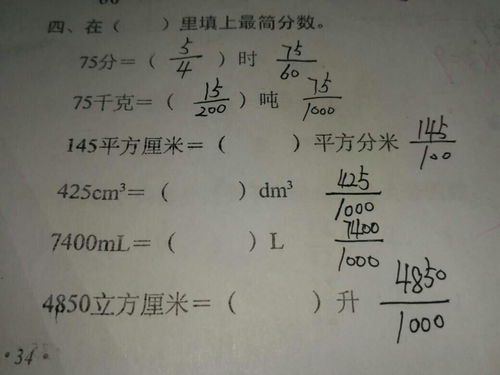 四、在（ ）里填上最简分数。
75分=（ 5/4 ）时 75/60
75千克=（ 15/200 ）吨 75/1000
145平方厘米=（ ）平方分米 145/100
425cm³=（ ）dm³ 425/1000
7400mL=（ ）L 7400/1000
4850立方厘米=（ ）升 4850/1000
·34·